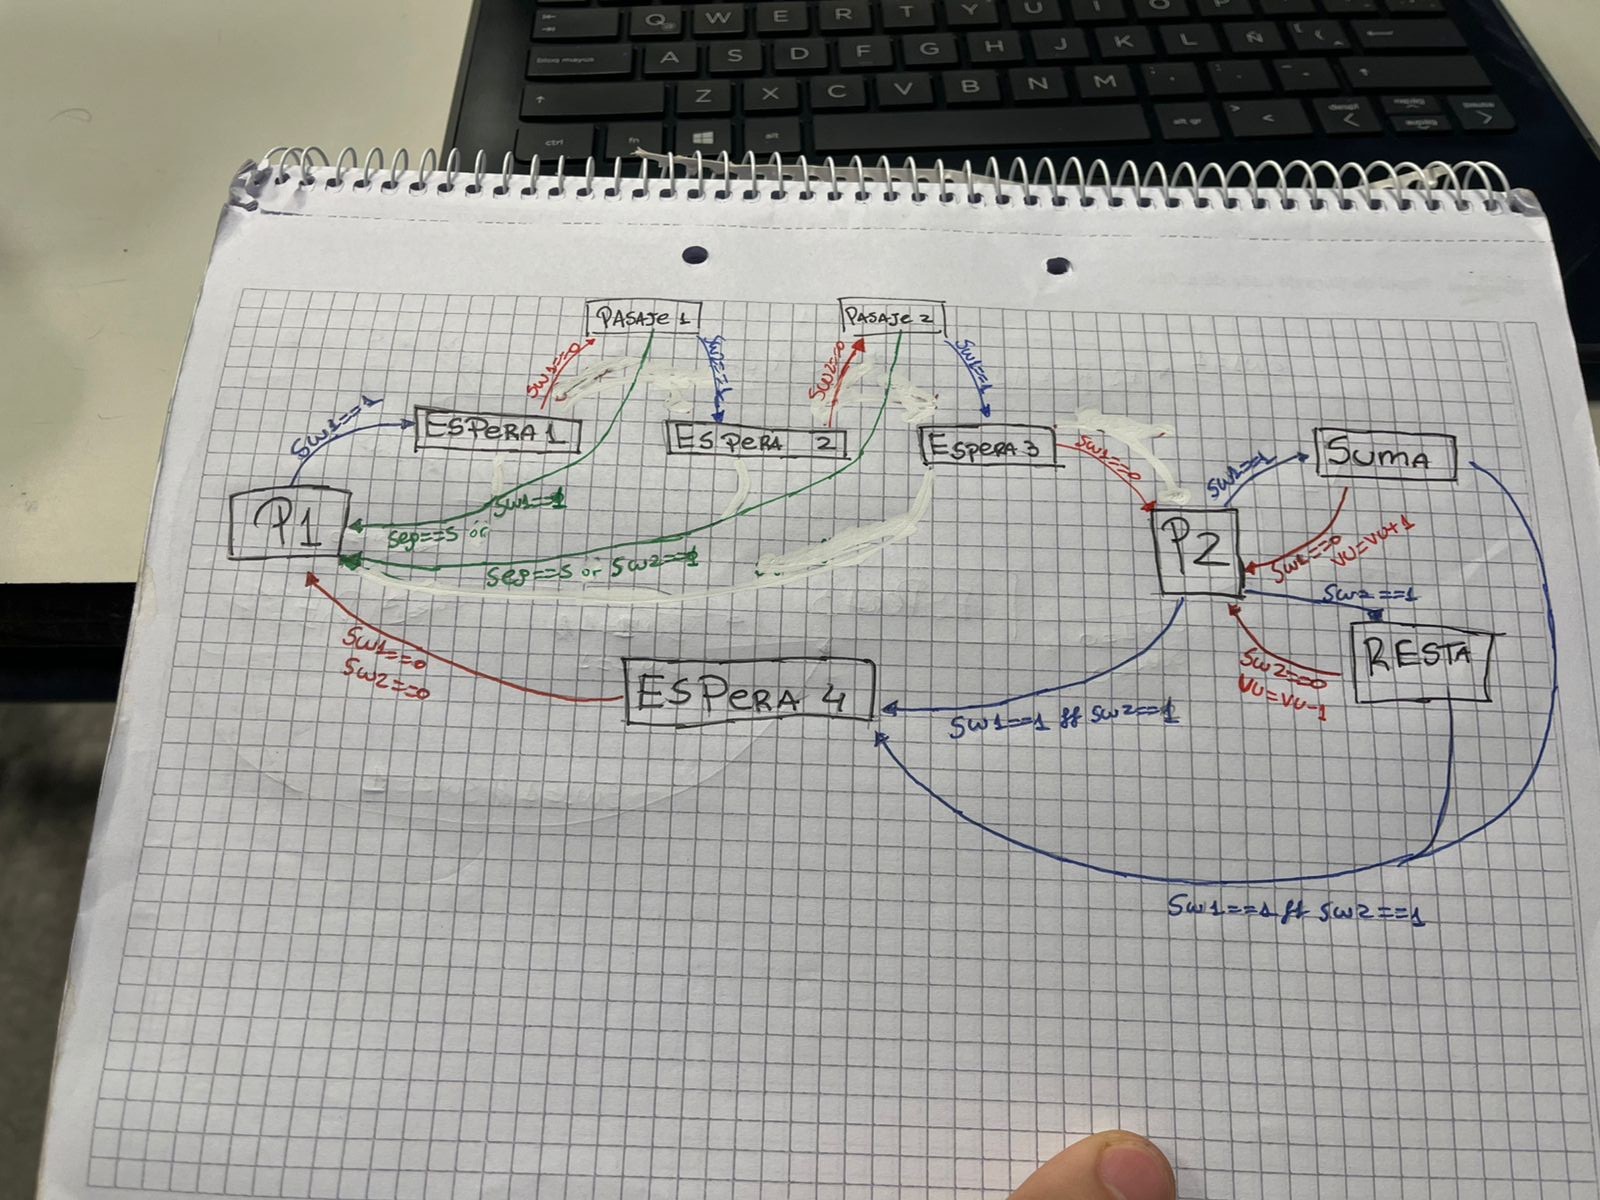 Q W E R T Y U I O P
bloq mayus A S D F G H J K L Ñ
Z X C V B N M
ctrl fn alt alt gr
PASAJE 1
PASAJE 2
SW1==0
SW2==1
SW2==0
SW1==1
SW1==1
ESPERA 1
ESPERA 2
ESPERA 3
SW1==0
SW1==1
SUMA
P1
SW1==1
seg==5 or
seg==5 or SW2==1
P2
SW1==0
VU=VU+1
SW2==1
RESTA
SW2==0
VU=VU-1
SW1==0
SW2==0
ESPERA 4
SW1==1 && SW2==1
SW1==1 && SW2==1